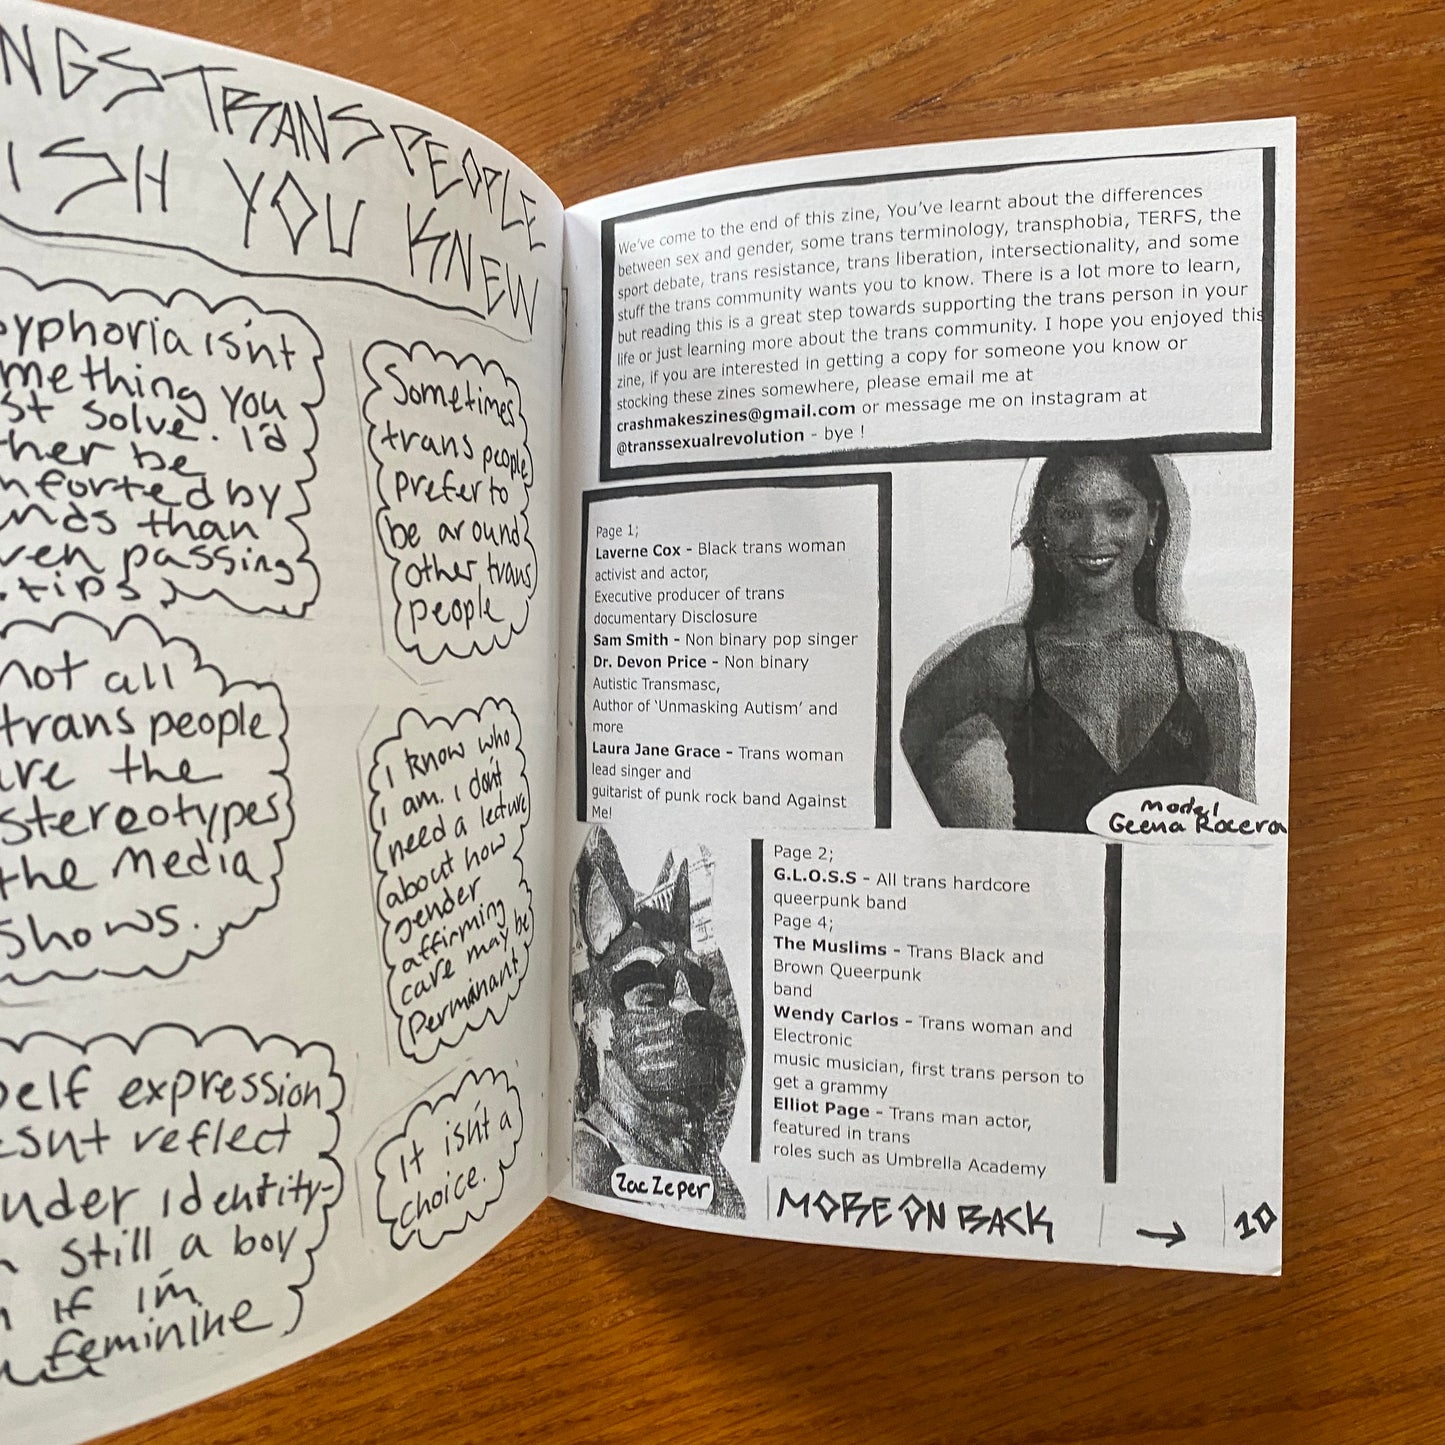 NGS TRANS PEOPLE
ISH YOU KNEW
yphoria isn't
mething you
st solve. I'd
her be
mforted by
nds than
ven passing
tips
not all
trans people
are the
stereotypes
the media
shows.
self expression
esn't reflect
nder identity-
still a boy
if i'm
feminine
Sometimes
trans people
prefer to
be around
other trans
people
i know who
i am. i don't
need a lecture
about how
gender
affirming
care may be
permanant
it isn't a
choice.
We've come to the end of this zine, You've learnt about the differences
between sex and gender, some trans terminology, transphobia, TERFS, the
sport debate, trans resistance, trans liberation, intersectionality, and some
stuff the trans community wants you to know. There is a lot more to learn,
but reading this is a great step towards supporting the trans person in your
life or just learning more about the trans community. I hope you enjoyed this
zine, if you are interested in getting a copy for someone you know or
stocking these zines somewhere, please email me at
crashmakeszines@gmail.com or message me on instagram at
@transsexualrevolution - bye !
Page 1;
Laverne Cox - Black trans woman
activist and actor,
Executive producer of trans
documentary Disclosure
Sam Smith - Non binary pop singer
Dr. Devon Price - Non binary
Autistic Transmasc,
Author of 'Unmasking Autism' and
more
Laura Jane Grace - Trans woman
lead singer and
guitarist of punk rock band Against
Me!
model
Geena Rocero
Page 2;
G.L.O.S.S - All trans hardcore
queerpunk band
Page 4;
The Muslims - Trans Black and
Brown Queerpunk
band
Wendy Carlos - Trans woman and
Electronic
music musician, first trans person to
get a grammy
Elliot Page - Trans man actor,
featured in trans
roles such as Umbrella Academy
Zac Zeper
MORE ON BACK → 10